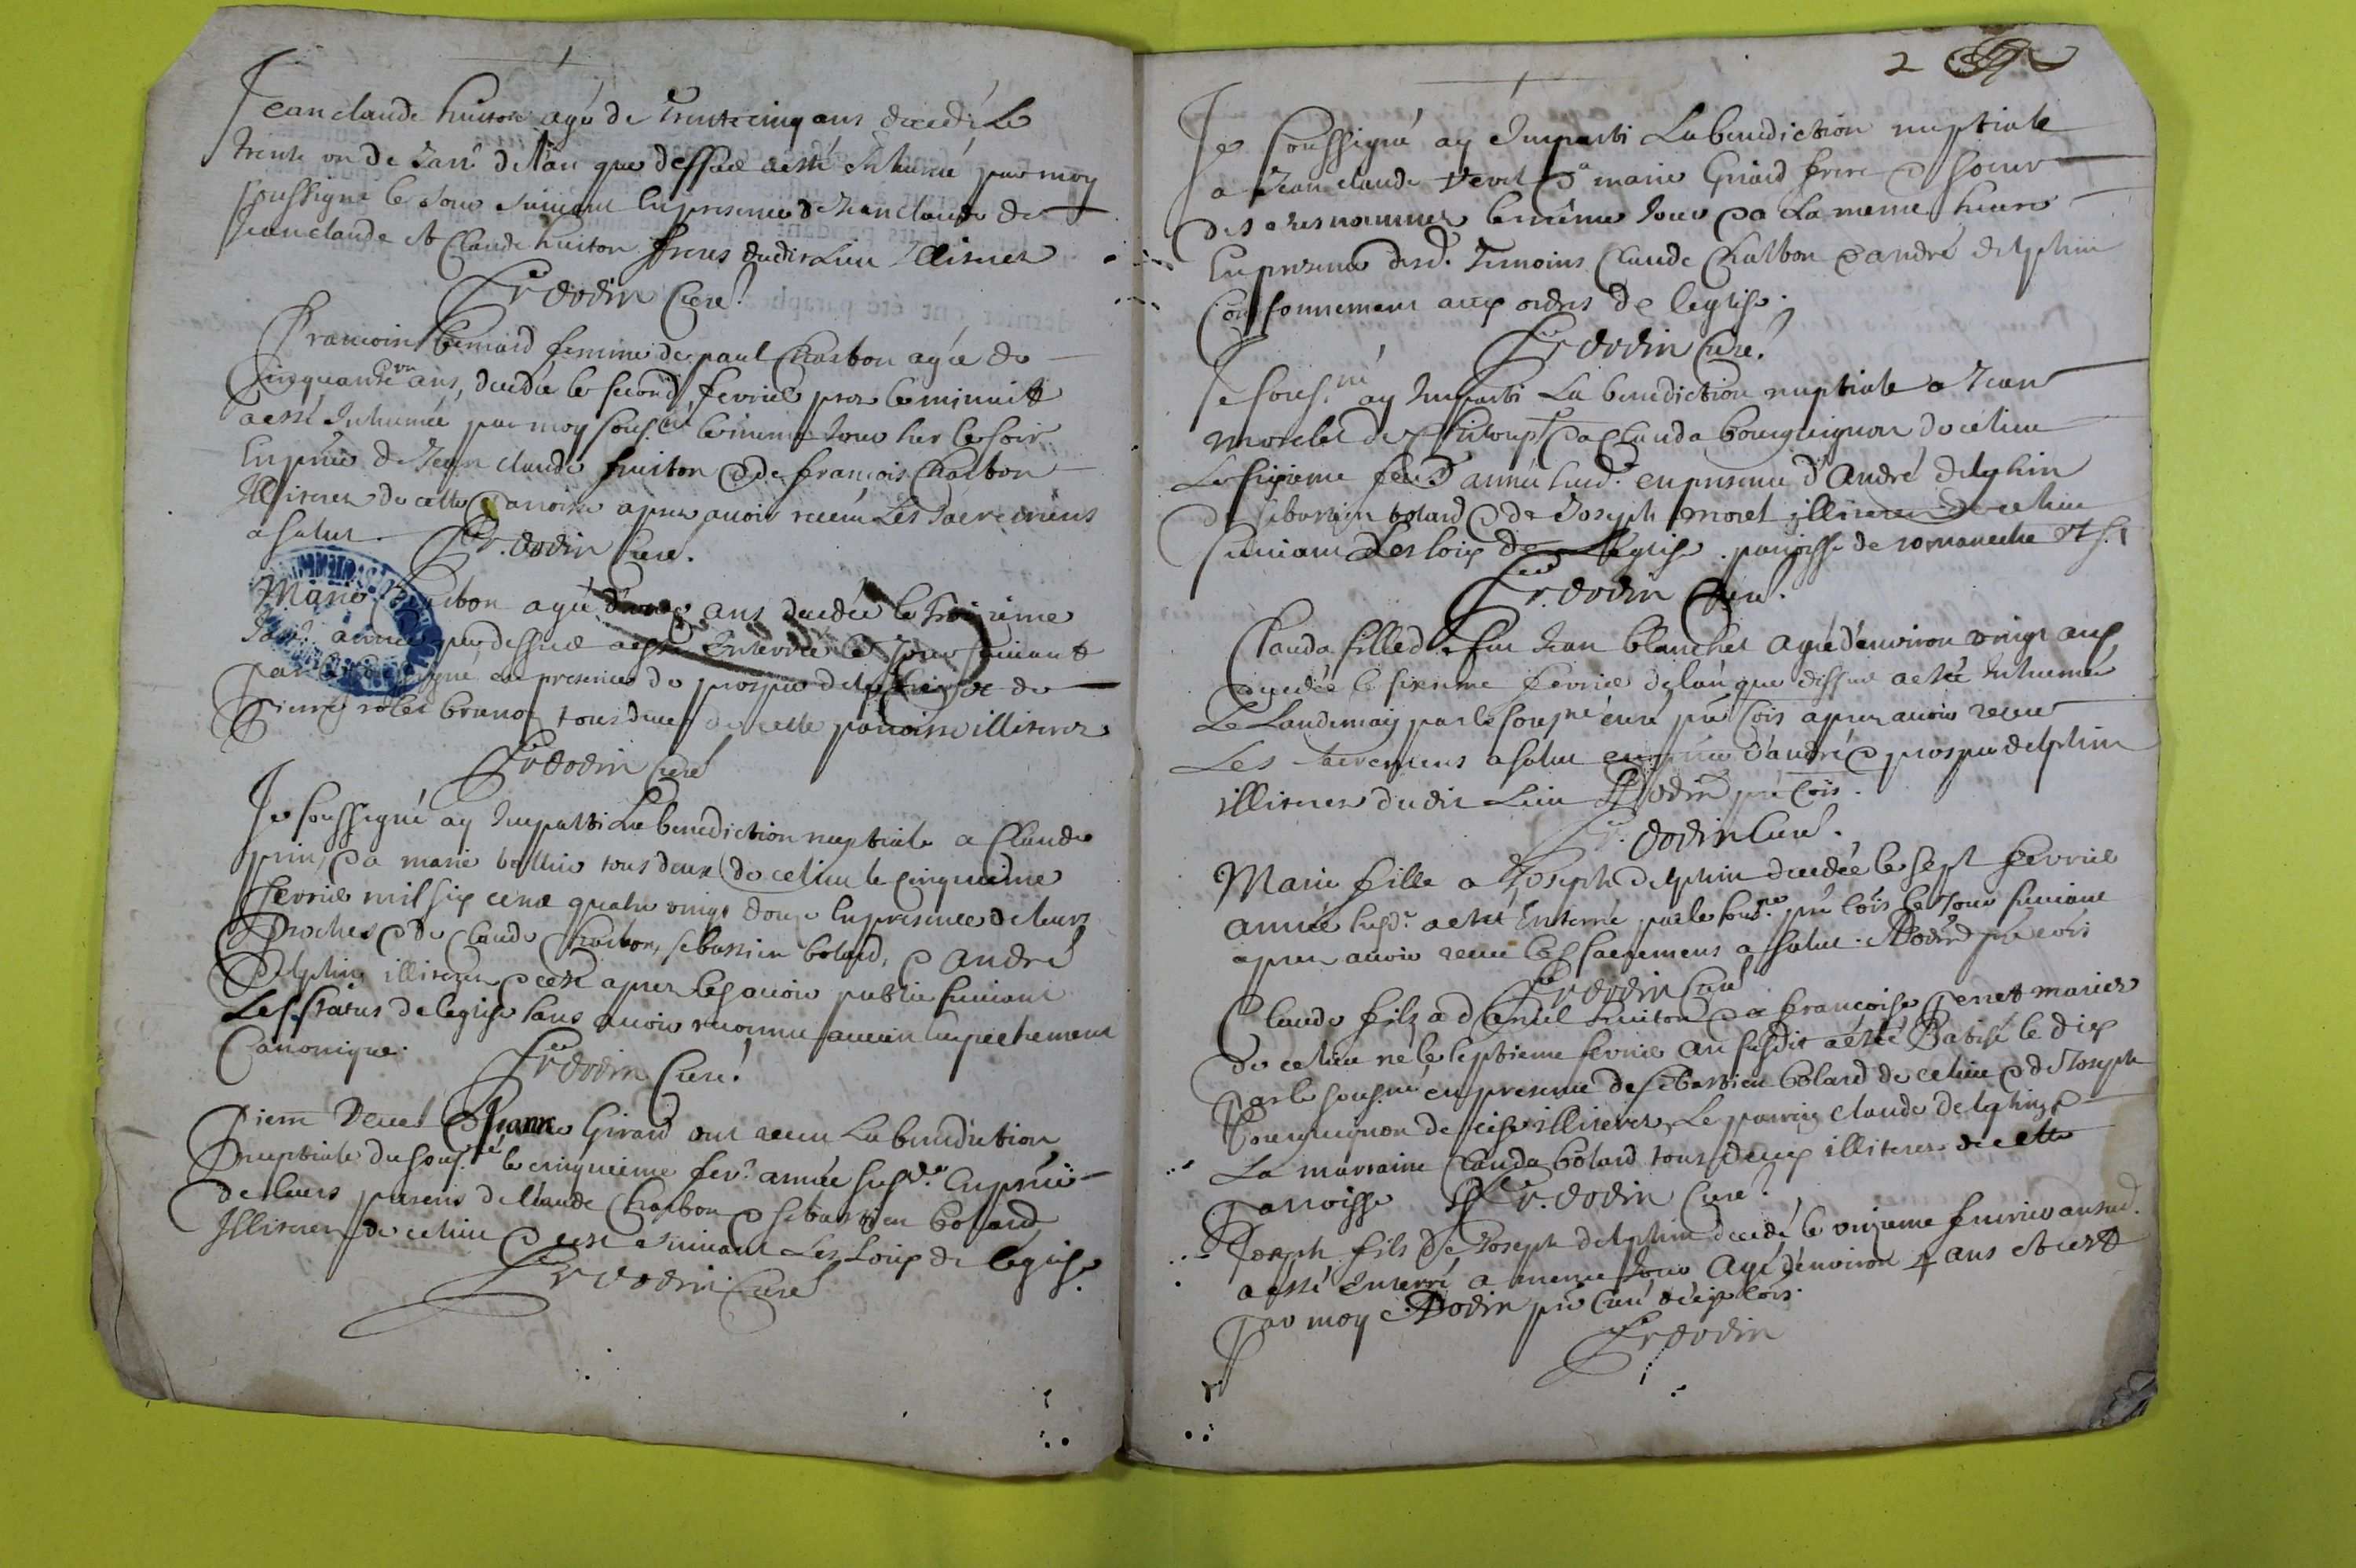 Jean claude huiton agé de Trente cinq ans decedé Le
trente un de Janr de lan que dessus a esté Inhumé par moy
soussigné le Jour suivant En presence de Jean claude de
Jean claude et Claude huiton freres dudit Lieu Illiterez
Fr Dodin Curé
Francoise bernard femme de paul Charbon agée de
Cinquante un ans, decedée le second fevrier pres le minuit
a esté Inhumée par moy sous.né le mesme Jour sur le soir
En pnce de Jean claude huiton & de françois Charbon
Illiterez de cette Paroisse apres avoir receu Les Sacremens
a salut. Fr. Dodin Curé.
Marie ans decedée le troisieme
Janr. année que dessus a esté Enterrée le Jour suivant
par le en presence de prosper delphin & de
Pierre brunot tous deux de cette paroisse illiterez
Fr Dodin Curé
Je soussigné ay Imparti La benediction nuptiale a Claude
prin, & a marie tous deux de ce lieu le cinquieme
fevrier mil six cent quatre vingt douze En presence de leurs
Proches & de Claude Charbon, sebastien bolard, & André
Delphin illiterez & cest apres les avoir publié suivant
Les Status de leglise sans avoir reconnu aucun Empechement
Canonique.
Fr Dodin Curé.
Pierre Vevet & Jeanne Girard ont receu La benediction
nuptiale du sous.né le cinquieme fevr. année susde. En pnce
de leurs parens de Claude Charbon & sebastien bolard
Illiterez de ce lieu & cest suivant Les Loix de leglise
Fr Dodin Curé
2
Je soussigné ay Imparti La benediction nuptiale
a Jean claude Vevet & a marie Girard frere & soeur
des nommez le même Jour & a La meme heure
En presence desd. Temoins Claude Charbon & andré delphin
Conformement aux ordres de leglise.
Fr Dodin Curé.
Je sous.né ay Imparti La benediction nuptiale a Jean
morelet de & a Clauda bourguignon de ce lieu
Le sixieme année susd. en presence d'André delphin
de sebastien bolard & de Joseph morel illiterez de ce lieu
suivant Les loix de leglise. paroisse de romaneche
Fr. Dodin Curé.
Clauda fille de feu Jean blanchet agée d'environ vingt ans
decedée le sixieme fevrier de lan que dessus a esté Inhumée
Le Landemain par le sousné curé pnt Cois apres avoir receu
Les sacremens a salut en pnce d'andré & prosper delphin
illiterez dudit Lieu Dodin
Fr. Dodin Curé.
Marie fille a Joseph delphin decedée le sept fevrier
année susd. a esté Enterrée par le sousné le Jour suivant
apres avoir receu les sacremens a salut. Dodin
Fr Dodin Curé
Claude filz a Daniel huiton & a francoise Perret mariez
de ce lieu né le septieme fevrier an susdit a esté Batisé le dix
par le sous.né en presence de sebastien bolard de ce lieu & de Joseph
Bourguignon de illiterez Le parrin claude delphin &
La marraine Clauda bolard tous deux illiterez de cette
Paroisse Fr. Dodin Curé.
Joseph fils de Joseph delphin decedé le onzieme fevrier an susd.
a esté Enterré a meme Jour Agé d'environ 4 ans et cest
par moy Dodin curé
Fr Dodin